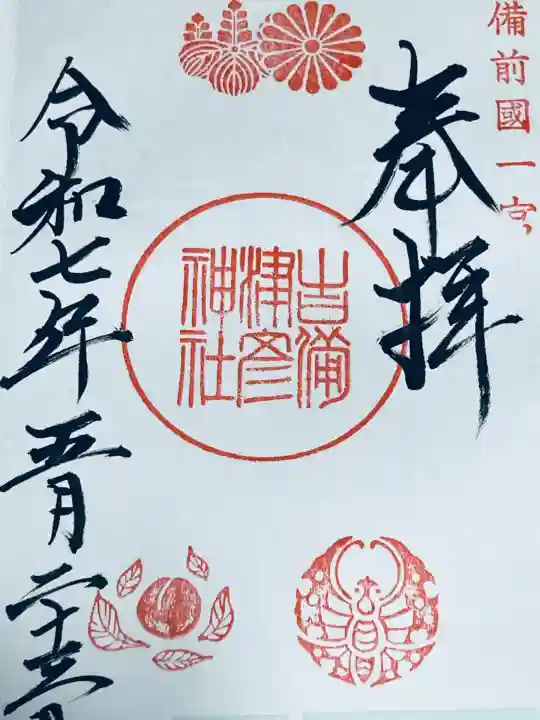 備前國一宮
奉拝
吉備
津彦
神社
令和七年五月二十三日